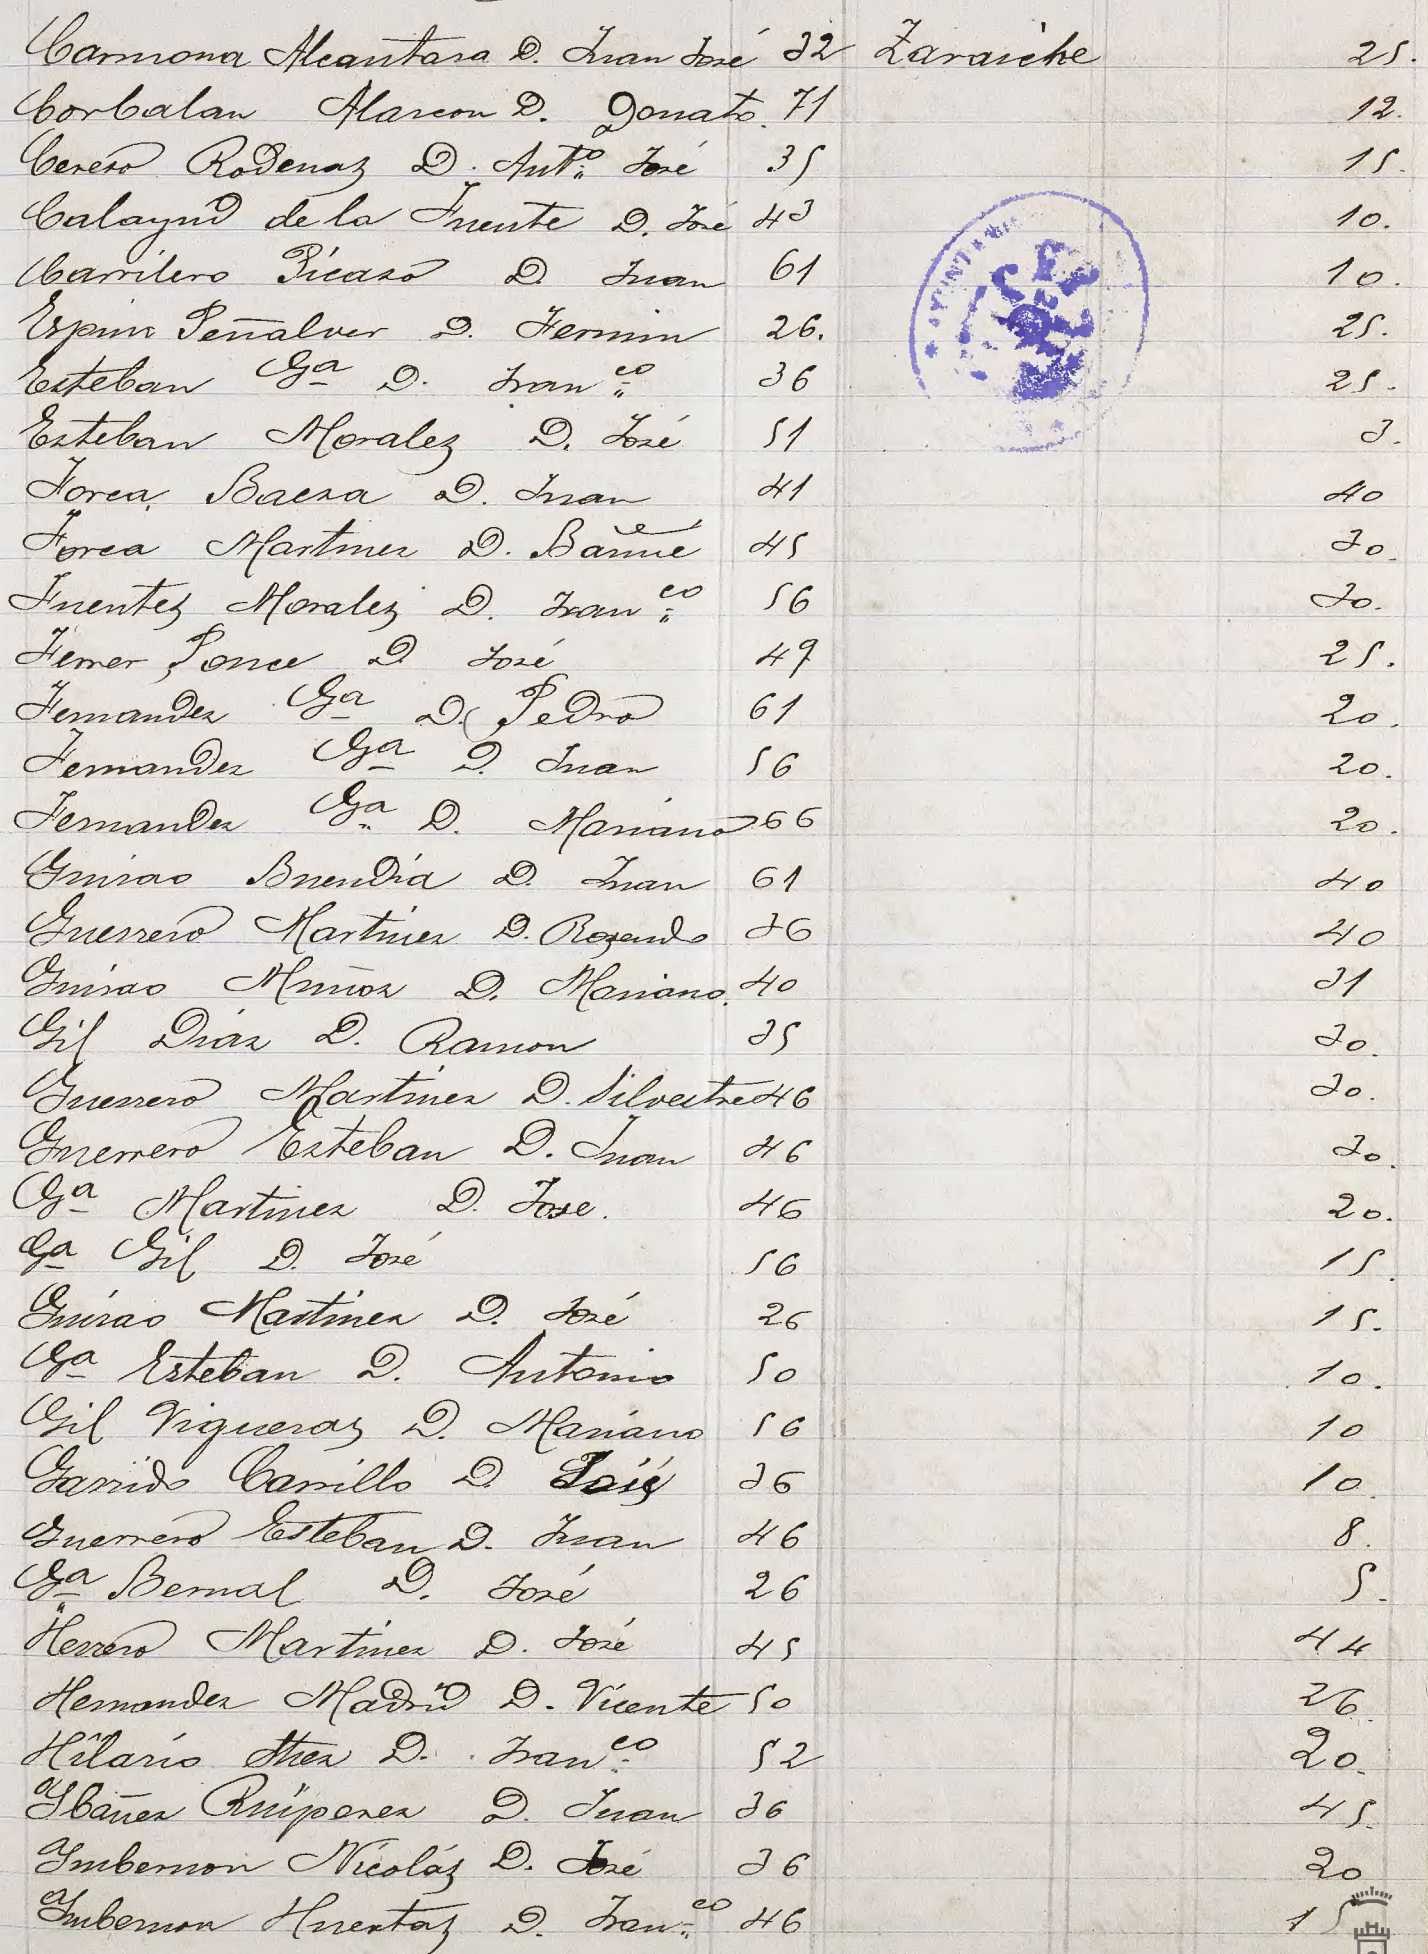 Carmona Alcantara D. Juan José 32 Zaraiche 25.
Corbalan Alarcon D. Donato. 71 12.
Cerero Rodenas D. Antº José 35 15.
Calayud de la Fuente D. José 43 10.
Carrilero Picaso D. Juan 61 10.
Espin Peñalver D. Fermin 26. 25.
Esteban Gª D. Franco 36 25.
Esteban Morales D. José 51 3.
Forca Baeza D. Juan 41 40
Forca Martinez D. 45 30.
Fuentes Morales D. Franco 56 30.
Ferrer Ponce D. José 49 25.
Fernandez Gª D. Pedro 61 20.
Fernandez Gª D. Juan 56 20.
Fernandez Gª D. Mariano 66 20.
Guirao Buendia D. Juan 61 40
Guerrero Martinez D. Rosendo 36 40
Guirao Muñoz D. Mariano. 40 31
Gil Diaz D. Ramon 35 30.
Guerrero Martinez D. Silvestre 46 30.
Guerrero Esteban D. Juan 46 30.
Gª Martinez D. Jose. 46 20.
Gª Gil D. José 56 15.
Guirao Martinez D. José 26 15.
Gª Esteban D. Antonio 50 10.
Gil Vigueras D. Mariano 56 10
Garrido Carrillo D. José 36 10.
Guerrero Esteban D. Juan 46 8.
Gª Bernal D. José 26 5.
Herrero Martinez D. José 45 44
Hernandez Madrid D. Vicente 50 26.
Hilario D. Franco 52 20.
Ybañez Ruiperez D. Juan 36 45.
Ymbernon Nicolás D. José 36 20
Ymbernon Huertas D. Franco 46 15